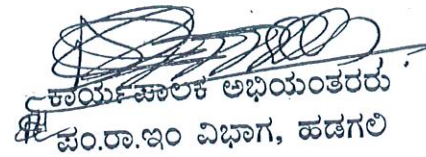 ಕಾರ್ಯಪಾಲಕ ಅಭಿಯಂತರರು
ಪಂ.ರಾ.ಇಂ ವಿಭಾಗ, ಹಡಗಲಿ